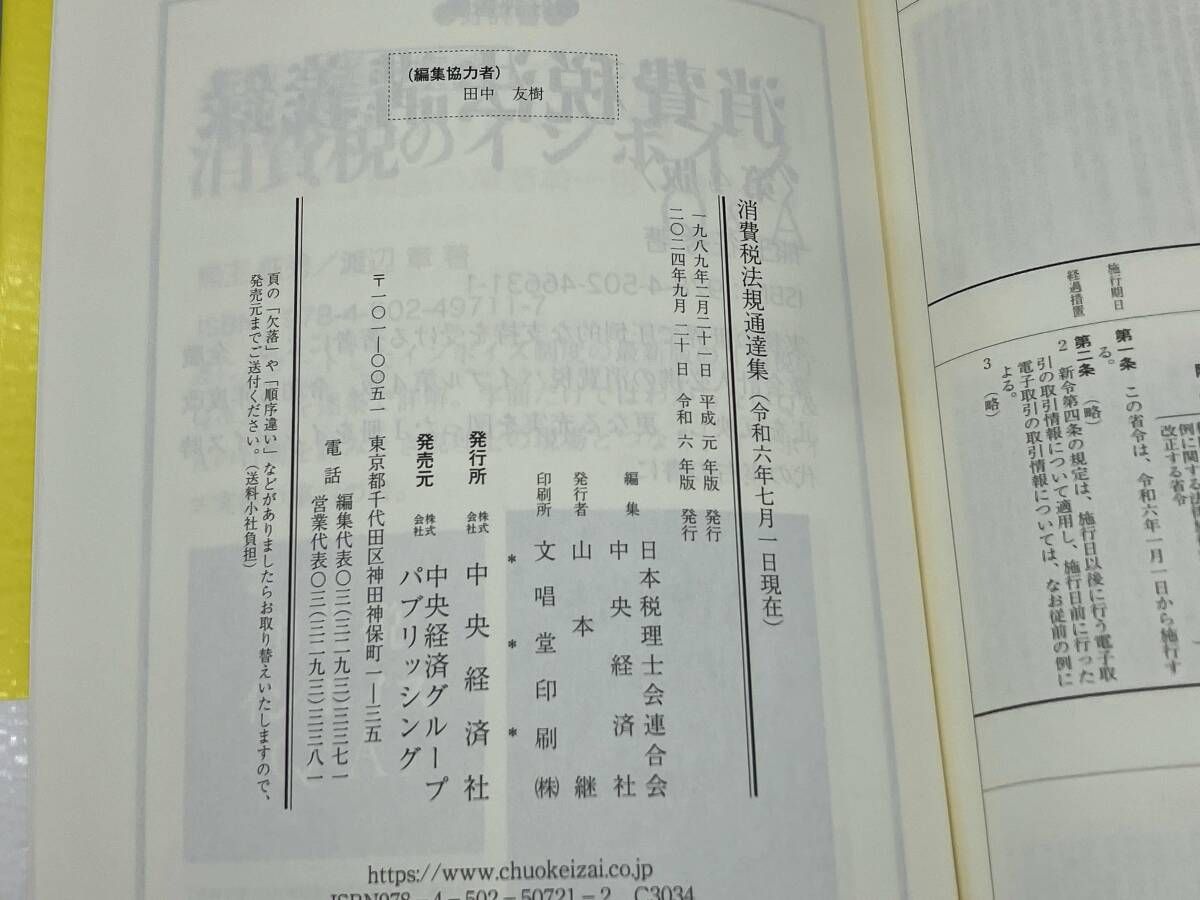 施行期日
経過措置
例に関する法
改正する省令
第一条 この省令は、令和六年一月一日から施行す
る。
第二条 (略)
2 新令第四条の規定は、施行日以後に行う電子取
引の取引情報について適用し、施行日前に行った
電子取引の取引情報については、なお従前の例に
よる。
3 (略)
(編集協力者)
田中 友樹
消費税法規通達集(令和六年七月一日現在)
一九八九年二月二十一日 平成元年版 発行
二〇二四年九月二十日 令和六年版 発行
編集 日本税理士会連合会
中央経済社
発行者 山本継
印刷所 文唱堂印刷㈱
* * *
発行所 株式会社 中央経済社
発売元 株式会社 中央経済グループ
パブリッシング
〒一〇一-〇〇五一 東京都千代田区神田神保町一-三五
電話 編集代表〇三(三二九三)三三七一
営業代表〇三(三二九三)三三八一
頁の「欠落」や「順序違い」などがありましたらお取り替えいたしますので、
発売元までご送付ください。(送料小社負担)
https://www.chuokeizai.co.jp
ISBN978-4-502-50721-2 C3034